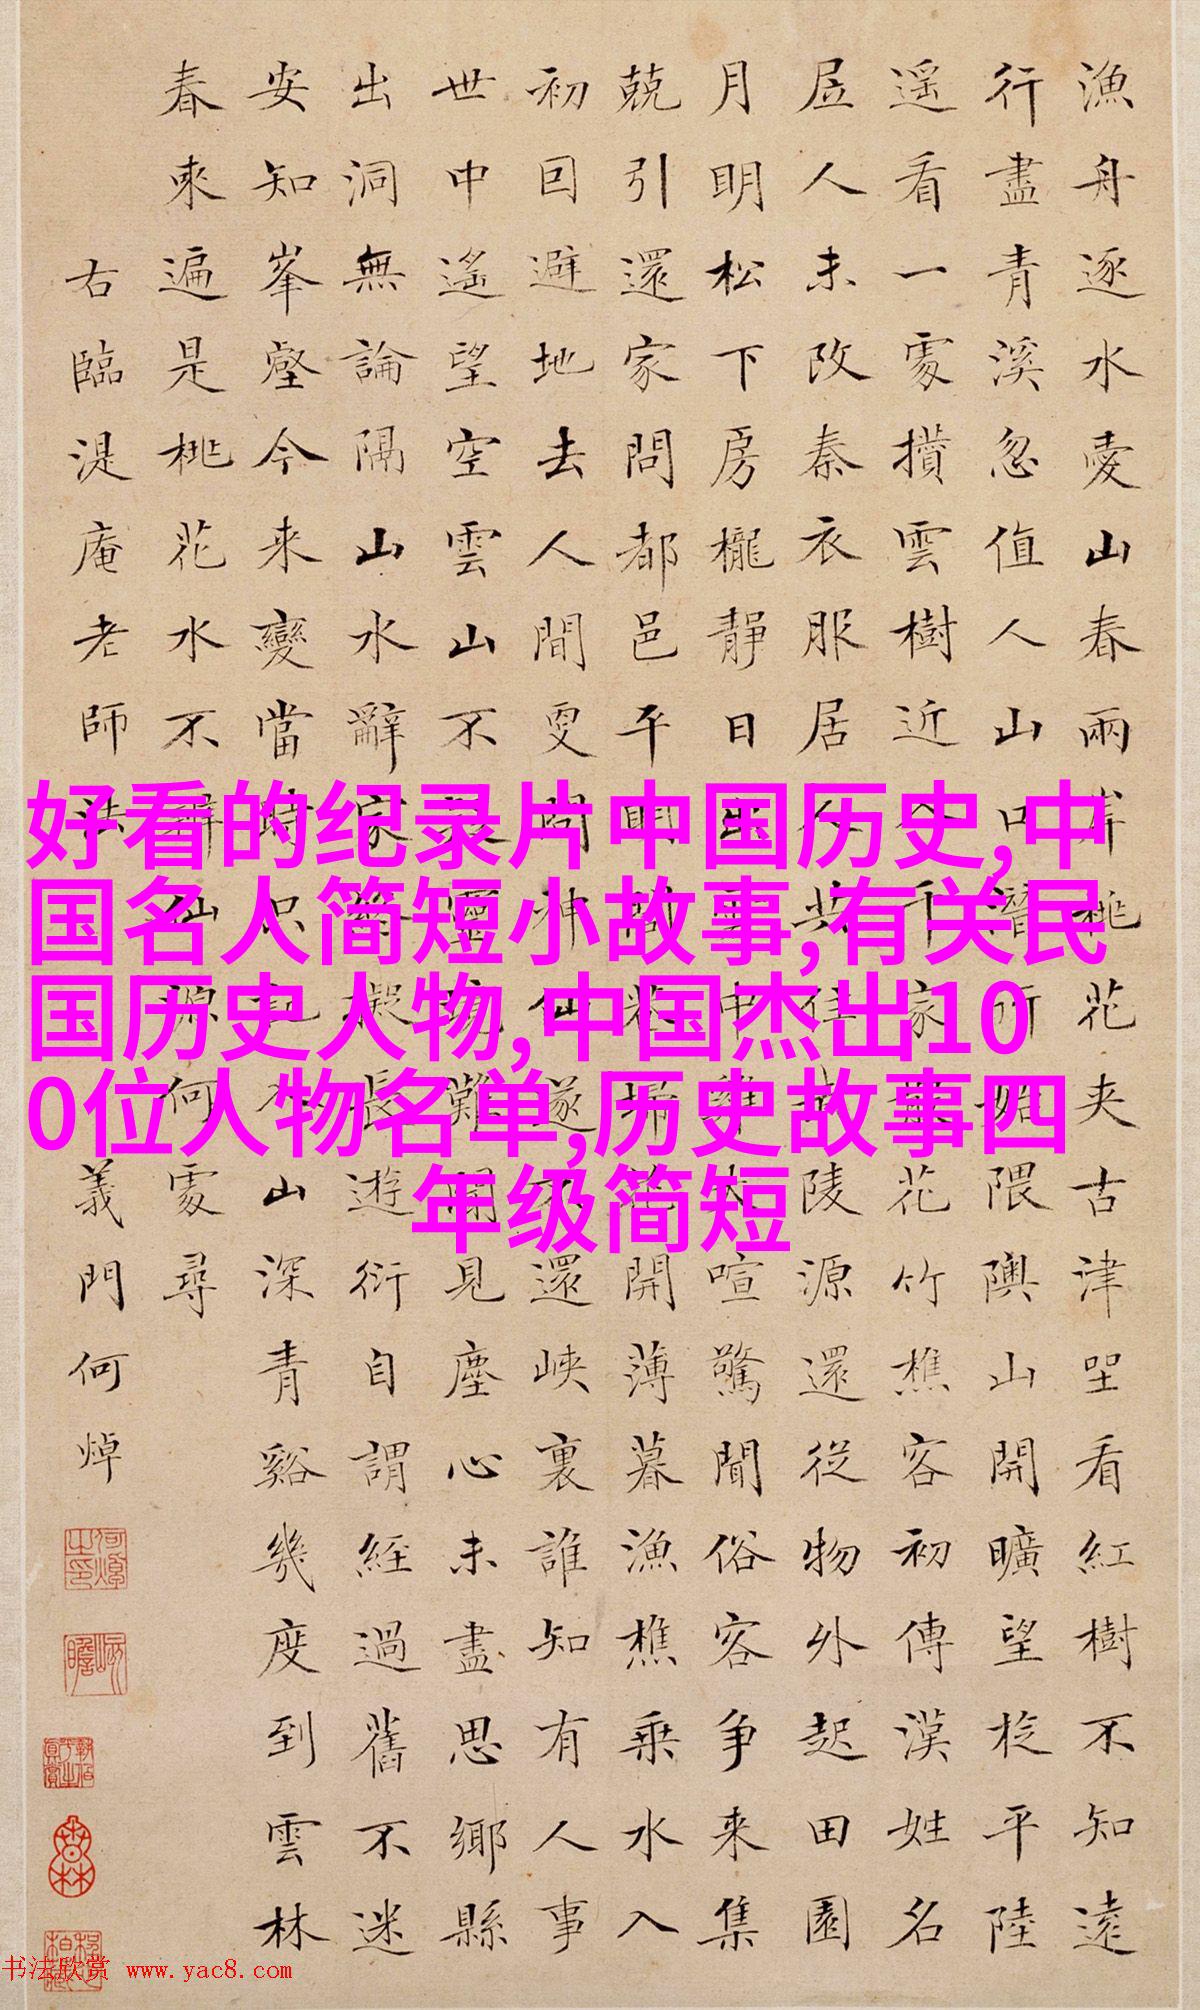 漁舟逐水愛山春兩岸桃花夾古津坐看紅樹不知遠
行盡青溪忽值人山口潛行始隈隩山開曠望旋平陸
遥看一處攢雲樹近入千家散花竹樵客初傳漢姓名
居人未改秦衣服居人共住武陵源還從物外起田園
月明松下房櫳靜日出雲中雞犬喧驚聞俗客争来集
競引還家問都邑平明閭巷掃花開薄暮漁樵乗水入
初回避地去人間更問神仙遂不還峽裏誰知有人事
世中遙望空雲山不疑靈境難聞見塵心未盡思鄉縣
出洞無論隔山水辭家終擬長遊衍自謂經過舊不迷
安知峯壑今来變當時只記入山深青谿幾度到雲林
春來遍是桃花水不辨仙源何處尋
右臨湜庵老師法 義門何焯
好看的纪录片中国历史,中
国名人简短小故事,有关民
国历史人物,中国杰出10
0位人物名单,历史故事四
年级简短
书法欣赏 www.yac8.com